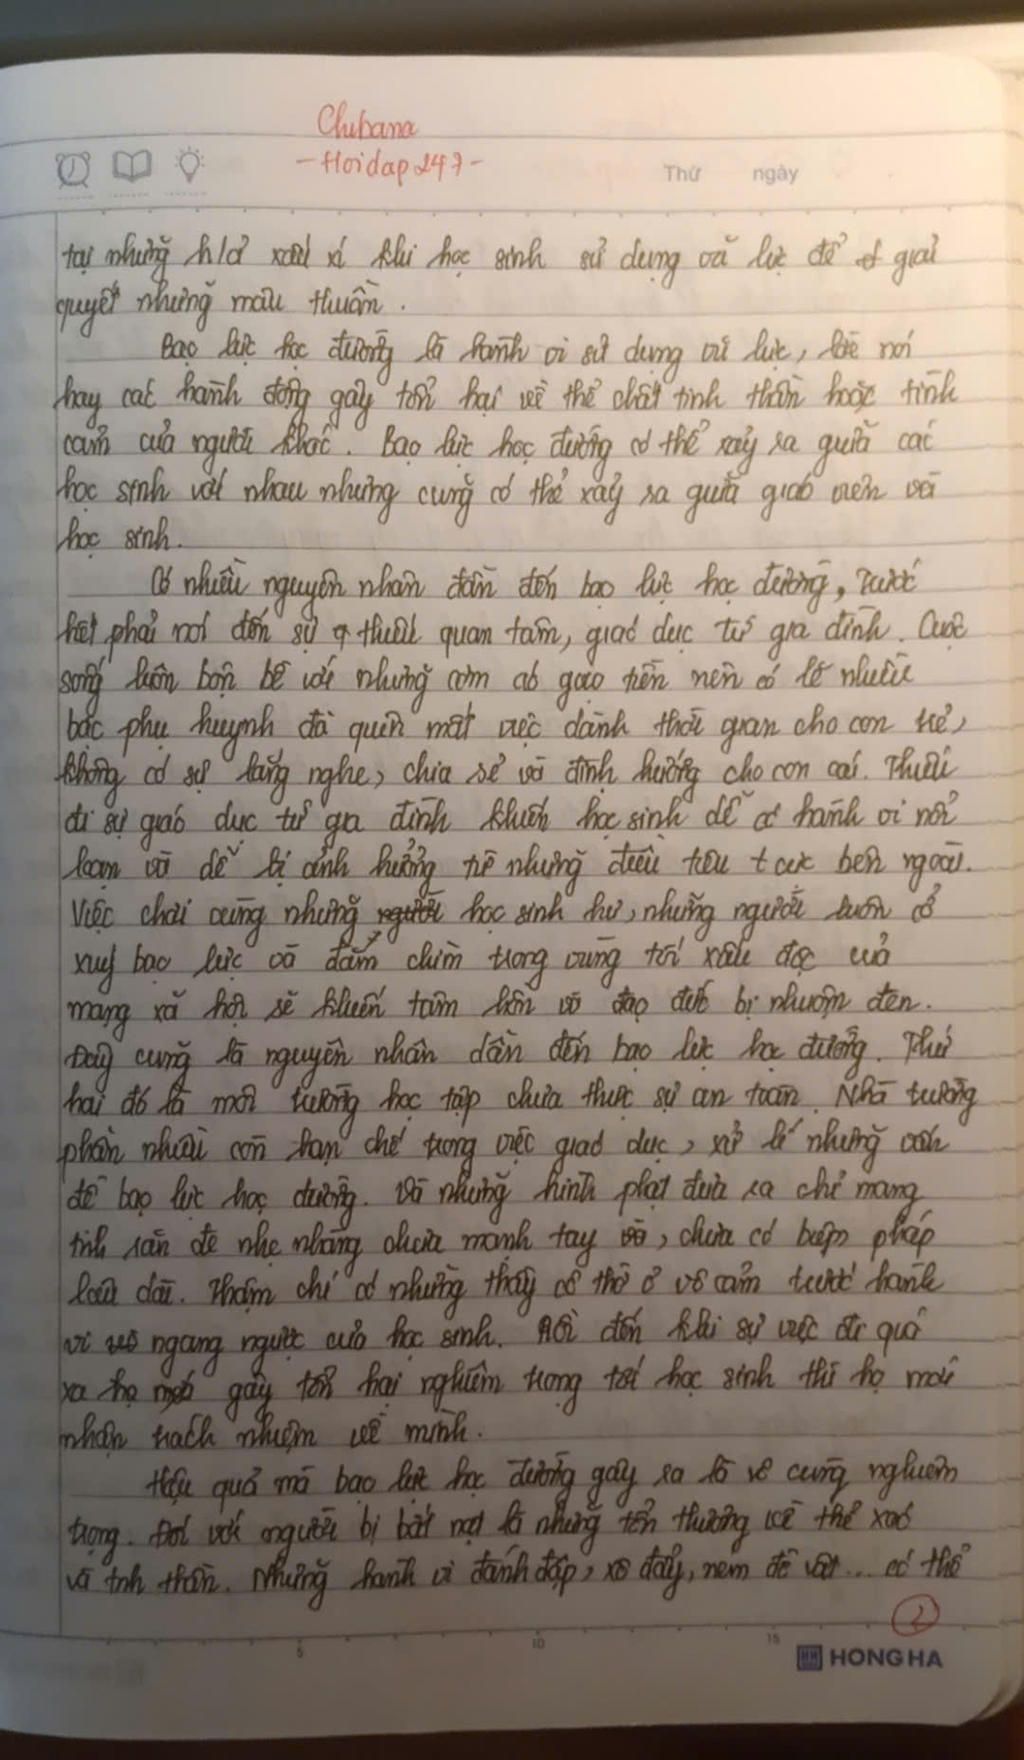 Chibana
- Hoidap247 -
Thứ ngày
tại những h/ả xấu xí khi học sinh sử dụng vũ lực để giải
quyết những mâu thuẫn.
Bạo lực học đường là hành vi sử dụng vũ lực, lời nói
hay các hành động gây tổn hại về thể chất tinh thần hoặc tình
cảm của người khác. Bạo lực học đường có thể xảy ra giữa các
học sinh với nhau nhưng cũng có thể xảy ra giữa giáo viên và
học sinh.
Có nhiều nguyên nhân dẫn đến bạo lực học đường, trước
hết phải nói đến sự thiếu quan tâm, giáo dục từ gia đình. Cuộc
sống luôn bộn bề với những cơm áo gạo tiền nên có lẽ nhiều
bậc phụ huynh đã quên mất việc dành thời gian cho con trẻ,
không có sự lắng nghe, chia sẻ và định hướng cho con cái. Thiếu
đi sự giáo dục từ gia đình khiến học sinh dễ có hành vi nổi
loạn và dễ bị ảnh hưởng từ những điều tiêu cực bên ngoài.
Việc chơi cùng những học sinh hư, những người luôn cổ
xuý bạo lực và đắm chìm trong vùng tối xấu độc của
mạng xã hội sẽ khiến tâm hồn và đạo đức bị nhuộm đen.
Đây cũng là nguyên nhân dẫn đến bạo lực học đường. Thứ
hai đó là môi trường học tập chưa thực sự an toàn. Nhà trường
phần nhiều còn hạn chế trong việc giáo dục, xử lí những vấn
đề bạo lực học đường. Và những hình phạt đưa ra chỉ mang
tính răn đe nhẹ nhàng chưa mạnh tay, chưa có biện pháp
lâu dài. Thậm chí có những thầy cô thờ ơ vô cảm trước hành
vi ngang ngược của học sinh. Rồi đến khi sự việc đi quá
xa gây tổn hại nghiêm trọng tới học sinh thì họ mới
nhận trách nhiệm về mình.
Hậu quả mà bạo lực học đường gây ra là vô cùng nghiêm
trọng. Đối với người bị bắt nạt là những tổn thương về thể xác
và tinh thần. Những hành vi đánh đập, xô đẩy, ném đồ vật... có thể
2
5 10 15
HONG HA